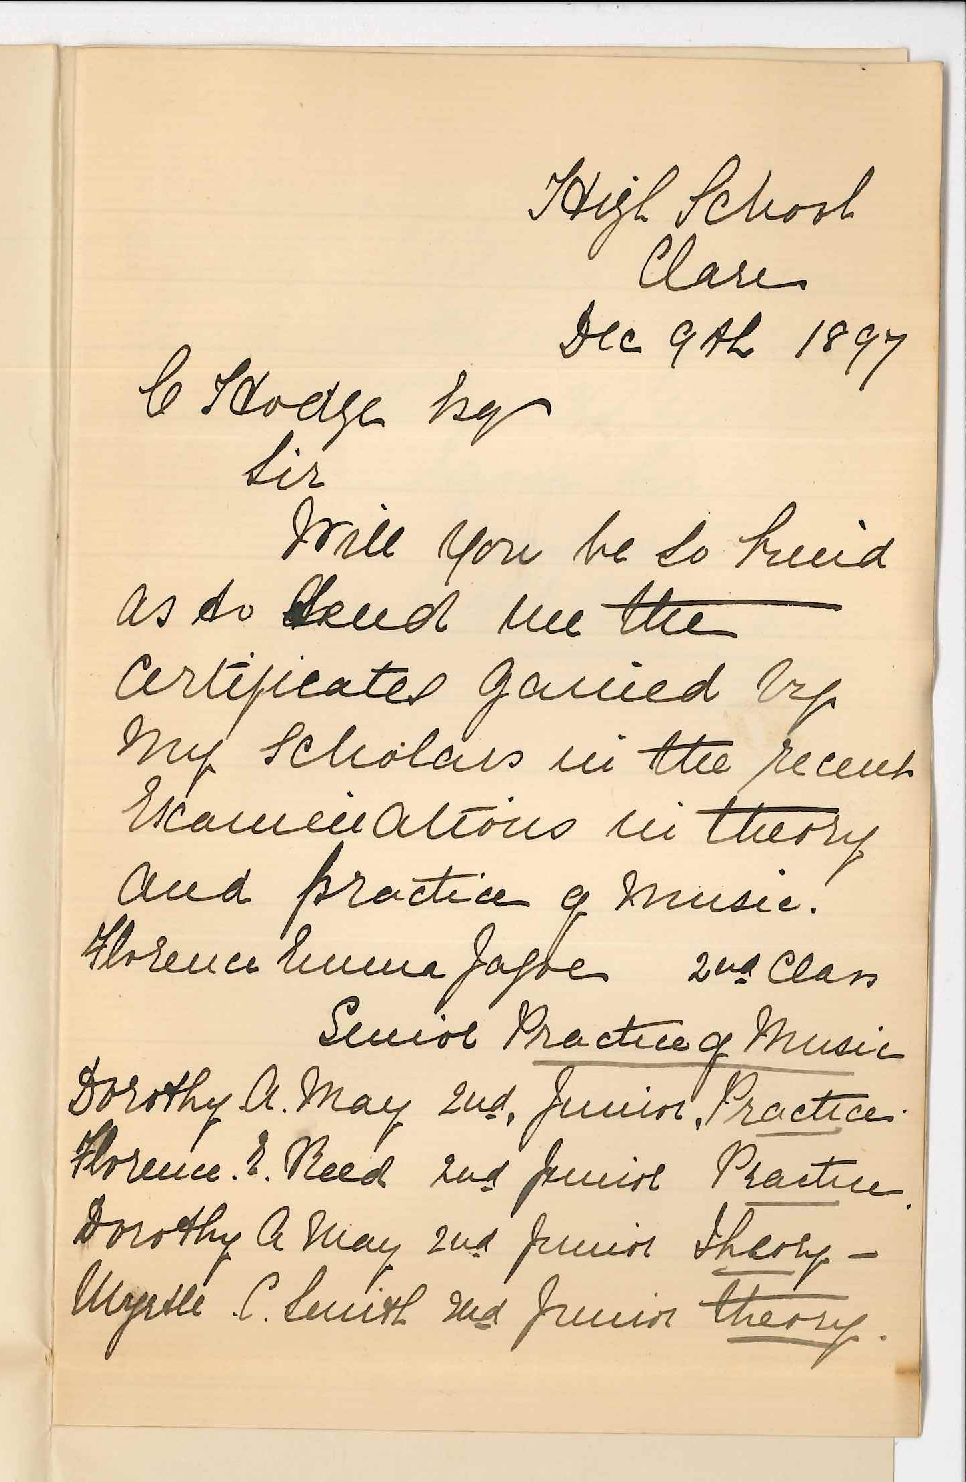 High School
Clare
Dec 9th 1897
C Hodge Esq
Sir
Will you be so kind
as to send me the
certificates gained by
my scholars in the recent
Examinations in theory
and practice of Music.
Florence Emma Jagoe 2nd Class
Senior Practice of Music
Dorothy A. May 2nd, Junior, Practice.
Florence. E. Reed 2nd Junior Practice.
Dorothy A May 2nd Junior Theory –
Myrtle C. Smith 2nd Junior theory.